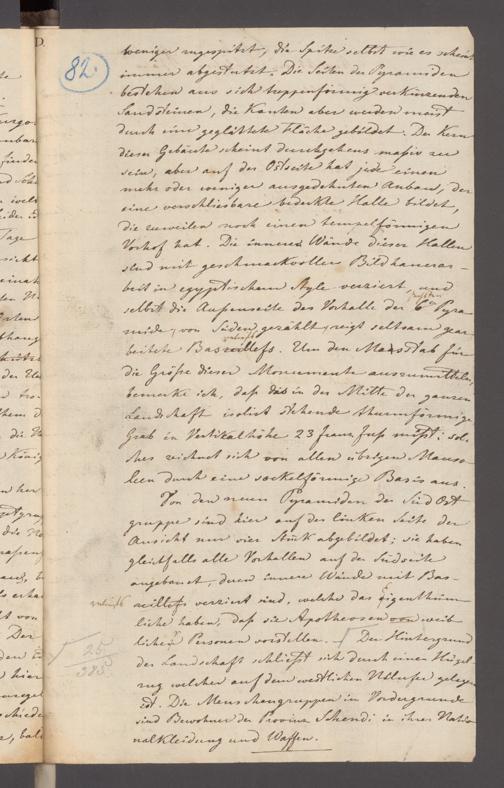 82.
weniger zugespitzt, die Spitze selbst wie es scheint
immer abgestutzt. Die Seiten der Pyramiden
bestehen aus sich treppenförmig verkürzenden
Sandsteinen, die Kanten aber werden meist
durch eine geglättete Fläche gebildet. Der Kern
dieser Gebäute scheint durchgehens massiv zu
sein, aber auf der Ostseite hat jede einen
mehr oder weniger ausgedehnten Anbau, der
eine verschliesbare bedeckte Halle bildet,
die zuweilen noch einen tempelförmigen
Vorhof hat. Die innere Wände dieser Hallen
sind mit geschmackvoller Bildhauerar-
beit in egyptischem Style verziert, und
selbst die Aussenseite der Vorhalle der 6ten Pyra-
mide, von Süden gezählt, zeigt seltsam gear
beitete Basreliefs. Um den Masstab für
die Größe dieser Monumente auszumitteln,
bemerke ich, daß das in der Mitte der ganzen
Landschaft isolirt stehende thurmförmige
Grab in Vertikalhöhe 23 franz. Fuß mißt; sol-
ches zeichnet sich von allen übrigen Mauso-
leen durch eine sockelförmige Basis aus.
Von den neun Pyramiden der Süd Ost
gruppe sind hier auf der linken Seite der
Ansicht nur vier Stük abgebildet; sie haben
gleichfalls alle Vorhallen auf der Südseite
angebaut, deren innere Wände mit Bas-
reliefs verziert sind, welche das Eigenthüm-
liche haben, daß sie Apotheosen von weib-
lichen Personen vorstellen. Der Hintergrund
der Landschaft schließt sich durch einen Hügel
zug welcher auf dem westlichen Nilufer gelegen
ist. Die Menschengruppen im Vordergrunde
sind Bewohner der Provinz Schendi in ihrer Natio-
nalkleidung und Waffen.